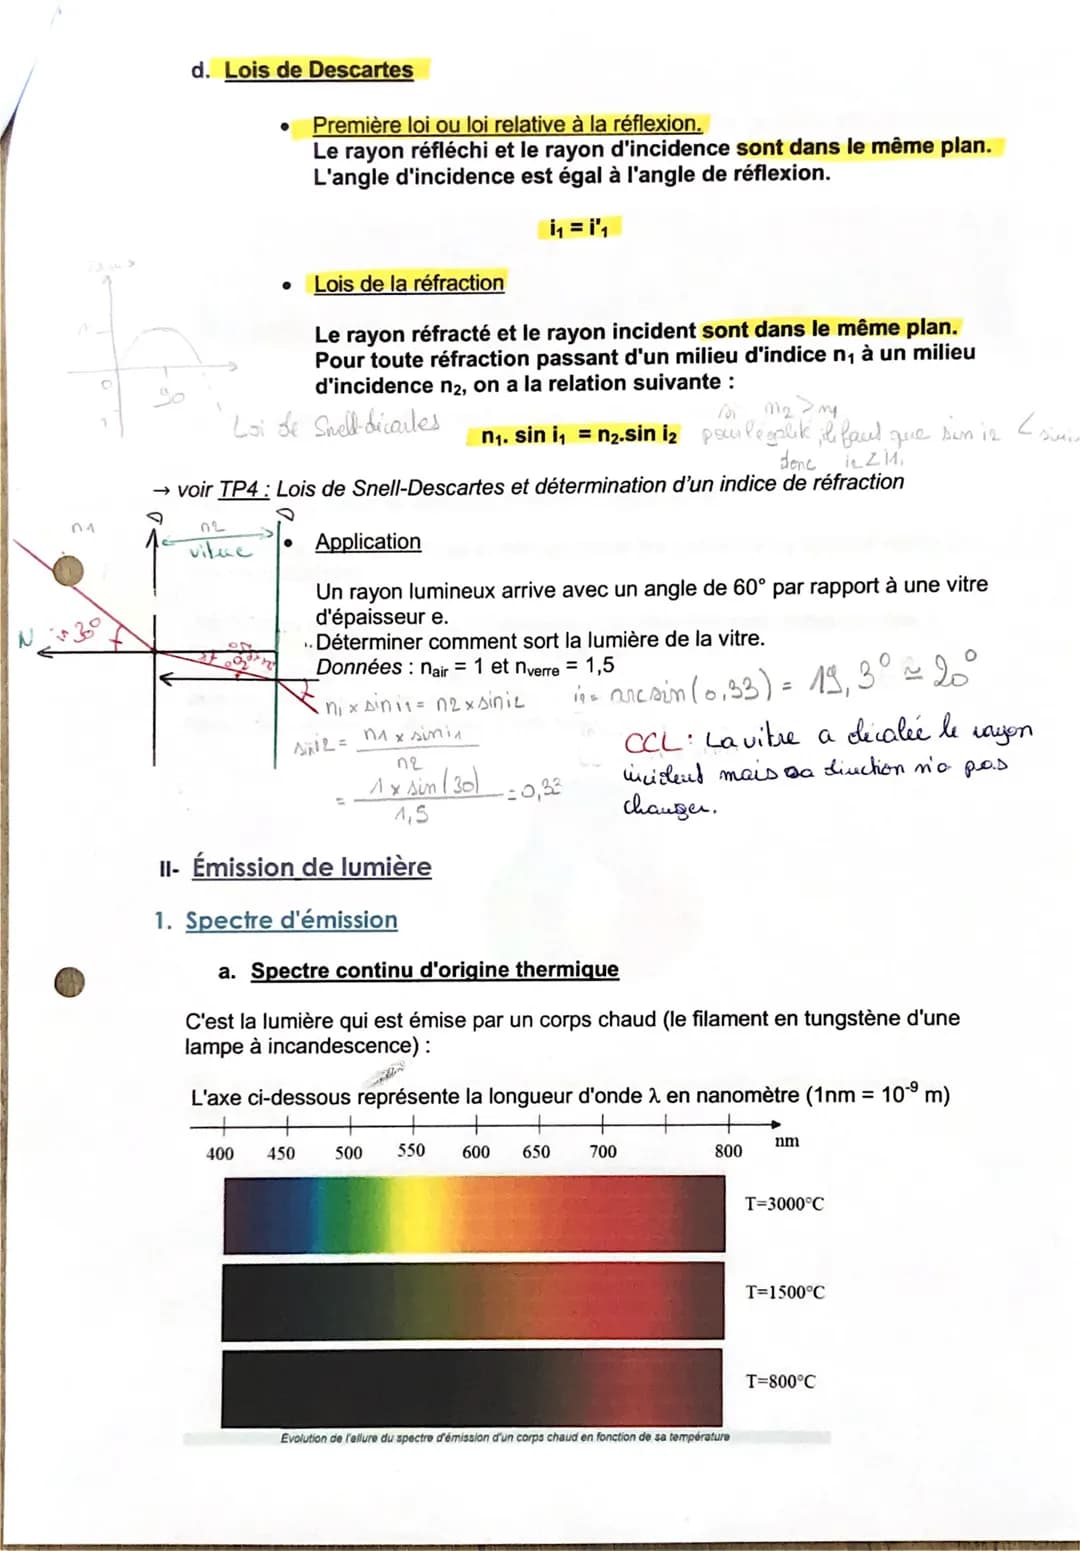 d. Lois de Descartes
• Première loi ou loi relative à la réflexion.
Le rayon réfléchi et le rayon d'incidence sont dans le même plan.
L'angle d'incidence est égal à l'angle de réflexion.
i₁ = i'₁
• Lois de la réfraction
Le rayon réfracté et le rayon incident sont dans le même plan.
Pour toute réfraction passant d'un milieu d'indice n₁ à un milieu
d'incidence n₂, on a la relation suivante :
1
0
90
Loi de Snell-décartes
n₁. sin i₁ = n₂.sin i₂
si n2 > n1
il faut que sin i2 <
donc i2 < i1
→ voir TP4 : Lois de Snell-Descartes et détermination d'un indice de réfraction
n1
n2
vitre
• Application
Un rayon lumineux arrive avec un angle de 60° par rapport à une vitre
d'épaisseur e.
Déterminer comment sort la lumière de la vitre.
Données : nair = 1 et nverre = 1,5
N
30°
n1 x sin i1 = n2 x sin i2
sin i2 = n1 x sin i1
n2
= 1 x sin (30) = 0,33
1,5
i2 = arcsin (0,33) = 19,3° ≃ 20°
CCL : La vitre a décalée le rayon
incident mais sa direction n'a pas
changer.
II- Émission de lumière
1. Spectre d'émission
a. Spectre continu d'origine thermique
C'est la lumière qui est émise par un corps chaud (le filament en tungstène d'une
lampe à incandescence) :
L'axe ci-dessous représente la longueur d'onde λ en nanomètre (1nm = 10⁻⁹ m)
400 450 500 550 600 650 700 800 nm
T=3000°C
T=1500°C
T=800°C
Evolution de l'allure du spectre d'émission d'un corps chaud en fonction de sa température